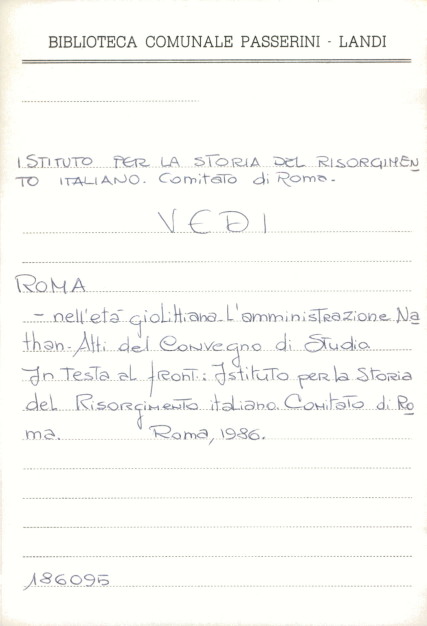 BIBLIOTECA COMUNALE PASSERINI - LANDI
ISTITUTO PER LA STORIA DEL RISORGIMEN
TO ITALIANO. Comitato di Roma.
VEDI
ROMA
- nell'età giolittiana. L'amministrazione Na
than. Atti del Convegno di Studio
In testa al front.: Istituto per la Storia
del Risorgimento italiano. Comitato di Ro
ma. Roma, 1986.
186095